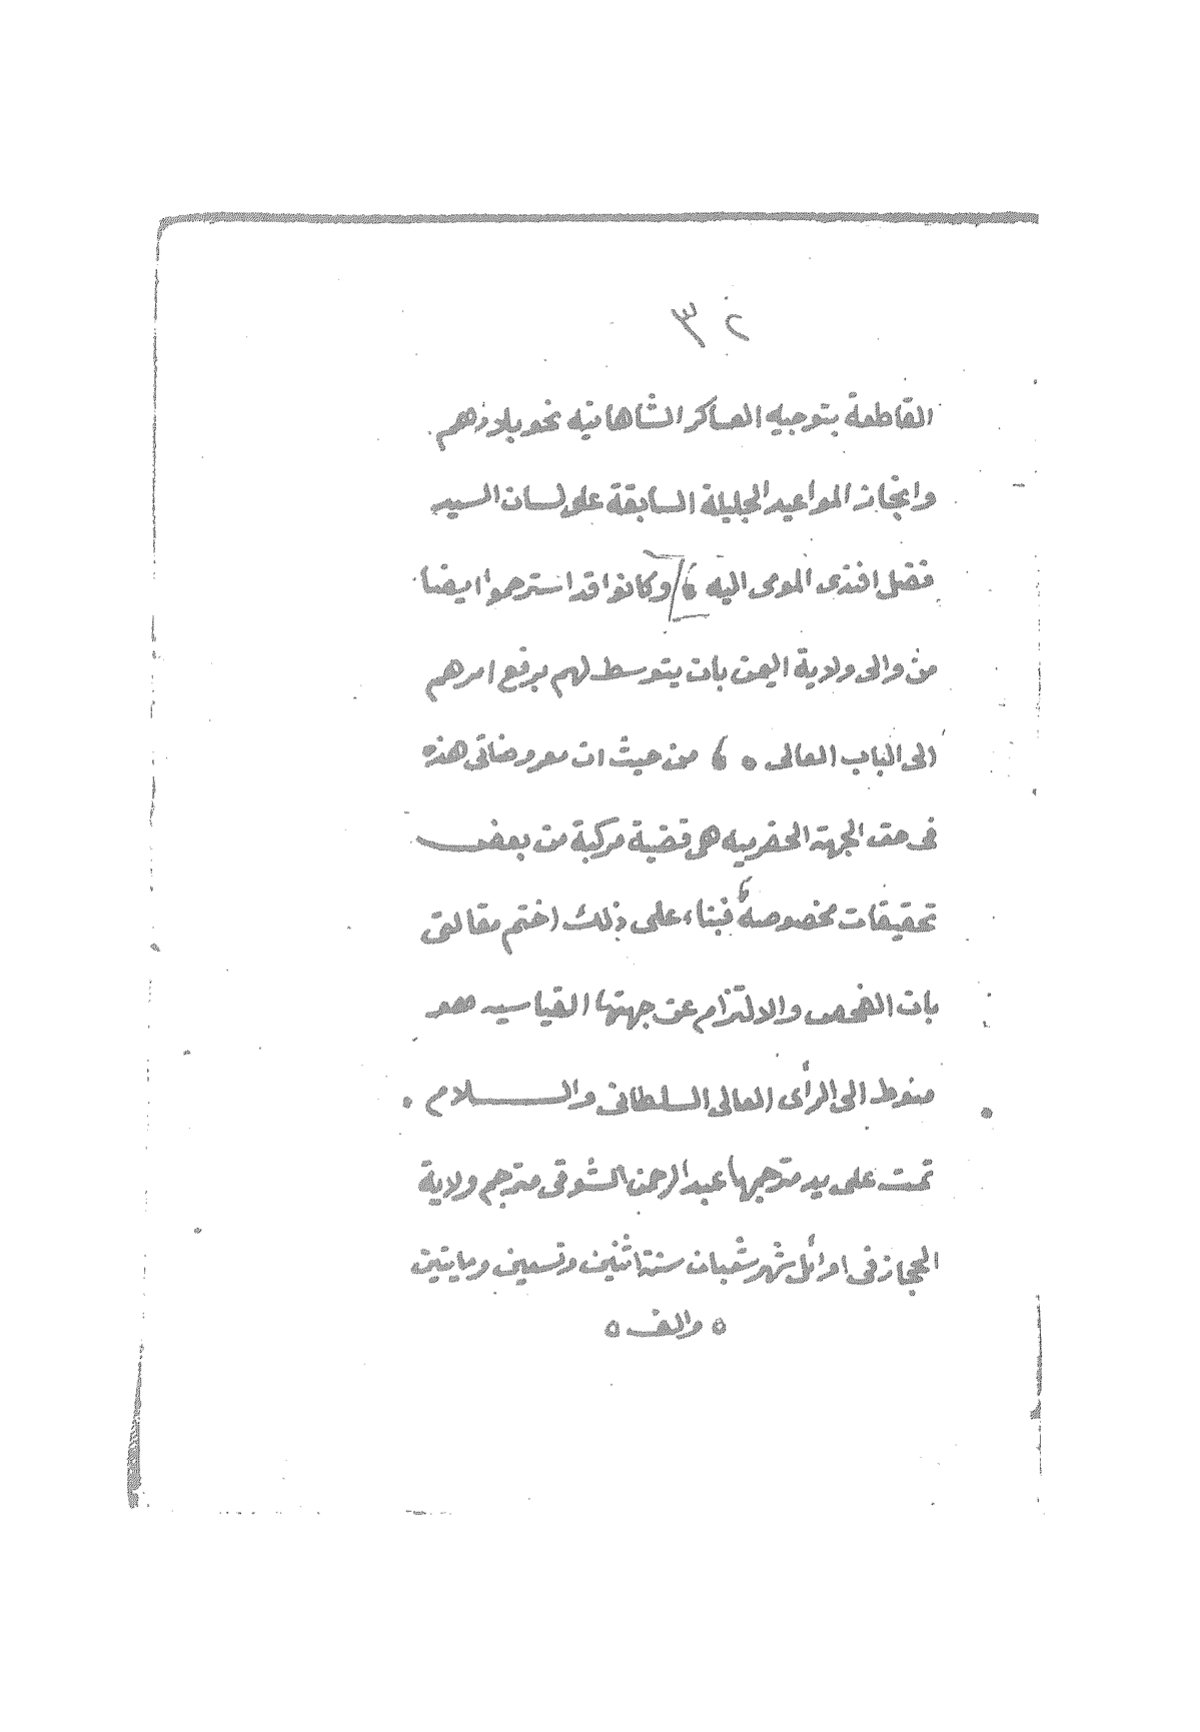 ٣٢
القاطعة بتوجيه العساكر الشاهانيه نحو بلادهم
وانجاز المواعيد الجليلة السابقة على لسان السيد
فضل افندى المومى اليه وكانوا قد استرحموا ايضا
من والى ولاية اليمن بان يتوسط لهم برفع امرهم
الى الباب العالى ٥ من حيث ان معروضاتى هذه
فى حق الجهة الحضرميه هى قضية مركبة من بعض
تحقيقات مخصوصة فبناء على ذلك اختم مقالتى
بان الفحص والالتزام عن جهتها القياسيه هو
منوط الى الرأى العالى السلطانى والسلام .
تمت على يد مترجمها عبدالرحمن الشوقى مترجم ولاية
الحجاز فى اوائل شهر شعبان سنة اثنين وتسعين ومايتين
٥ والف ٥